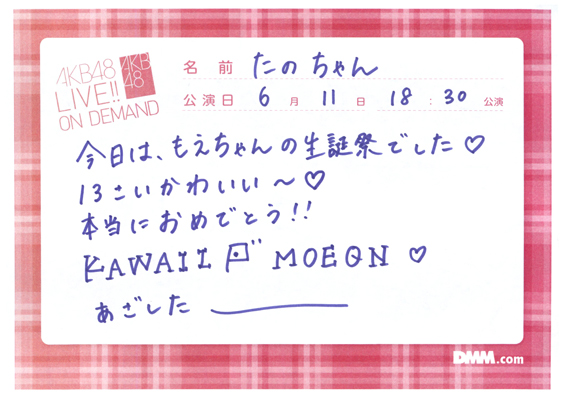 AKB48
LIVE!!
ON DEMAND
AKB
48
名前 たのちゃん
公演日 6月11日 18:30公演
今日は、もえちゃんの生誕祭でした♡
13さいかわいい〜♡
本当におめでとう!!
KAWAII MOEQN ♡
あざした
DMM.com